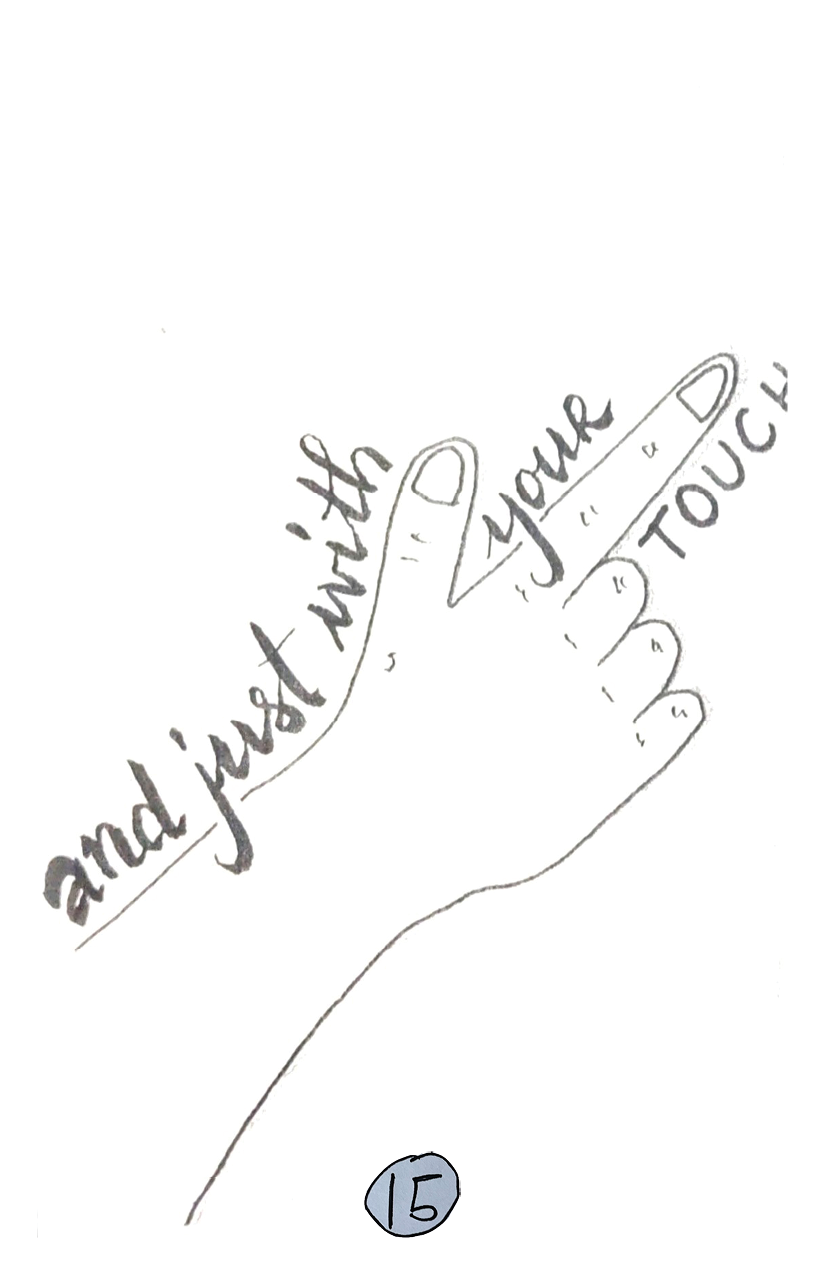 and just with your TOUCH
15